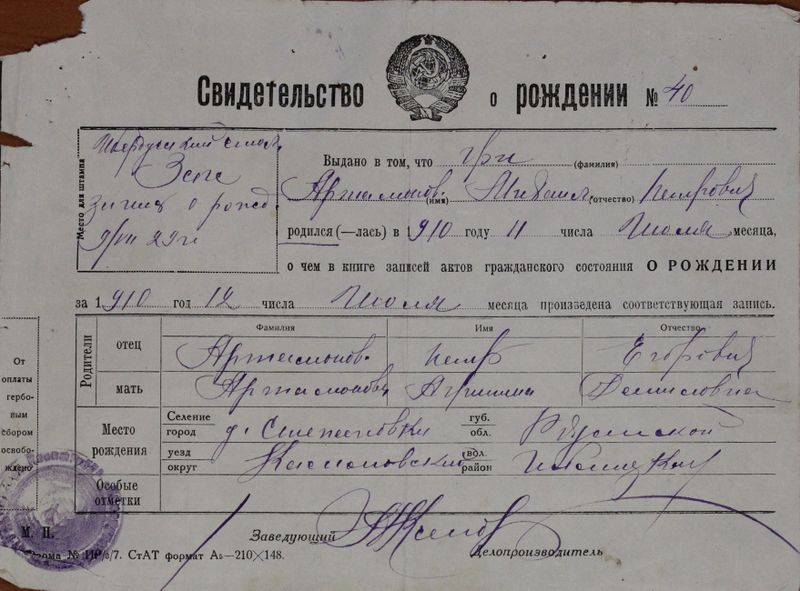 Свидетельство о рождении № 40
Место для штампа
Загс
9/VII 29 г.
Выдано в том, что гр-н
(фамилия)
Артамонов Михаил Петрович
(имя) (отчество)
родился (—лась) в 910 году 11 числа Июля месяца,
о чем в книге записей актов гражданского состояния О РОЖДЕНИИ
за 1910 год 12 числа Июля месяца произведена соответствующая запись.
Родители
Фамилия Имя Отчество
отец Артамонов Петр Егорович
мать Артамонова Агриппина Даниловна
Место рождения
Селение город д. Степановка губ. обл. Рязанской
уезд округ Касимовский вол. район
Особые отметки
От оплаты гербовым сбором освобождено
М. П.
Заведующий
Делопроизводитель
Форма № ПР/3/7. СтАТ формат А5—210×148.